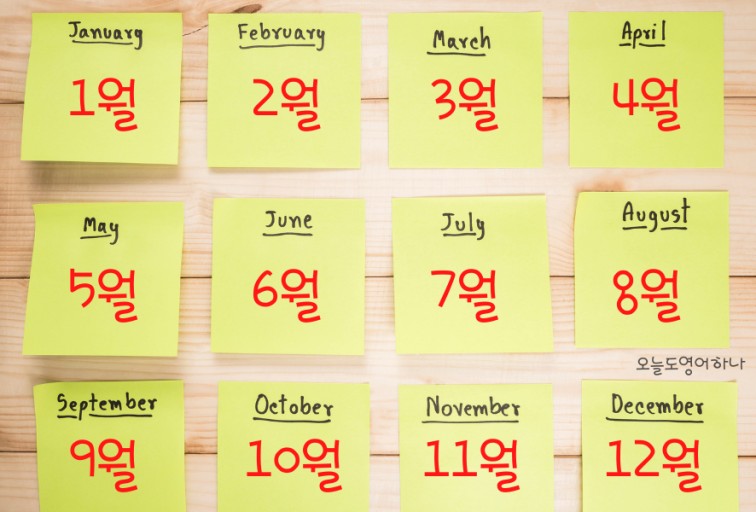 January
1월
February
2월
March
3월
April
4월
May
5월
June
6월
July
7월
August
8월
오늘도영어하나
September
9월
October
10월
November
11월
December
12월